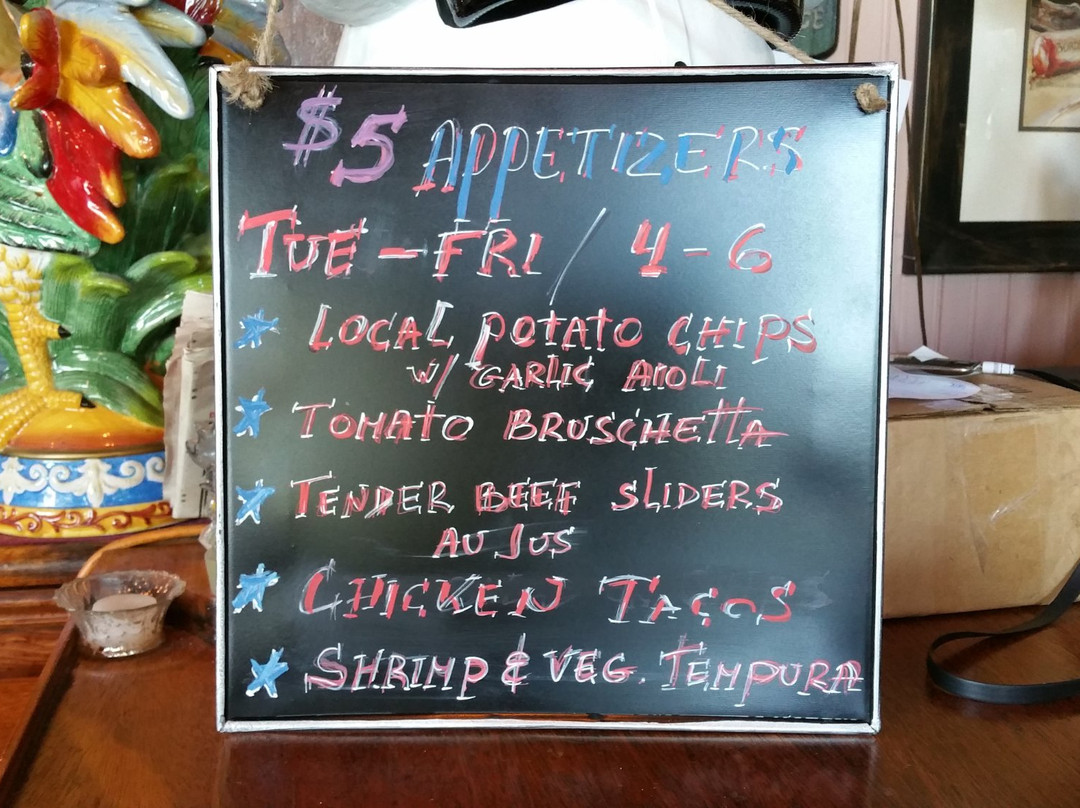 $5 APPETIZERS
TUE - FRI / 4 - 6
LOCAL POTATO CHIPS
W/ GARLIC AIOLI
TOMATO BRUSCHETTA
TENDER BEEF SLIDERS
AU JUS
CHICKEN TACOS
SHRIMP & VEG. TEMPURA